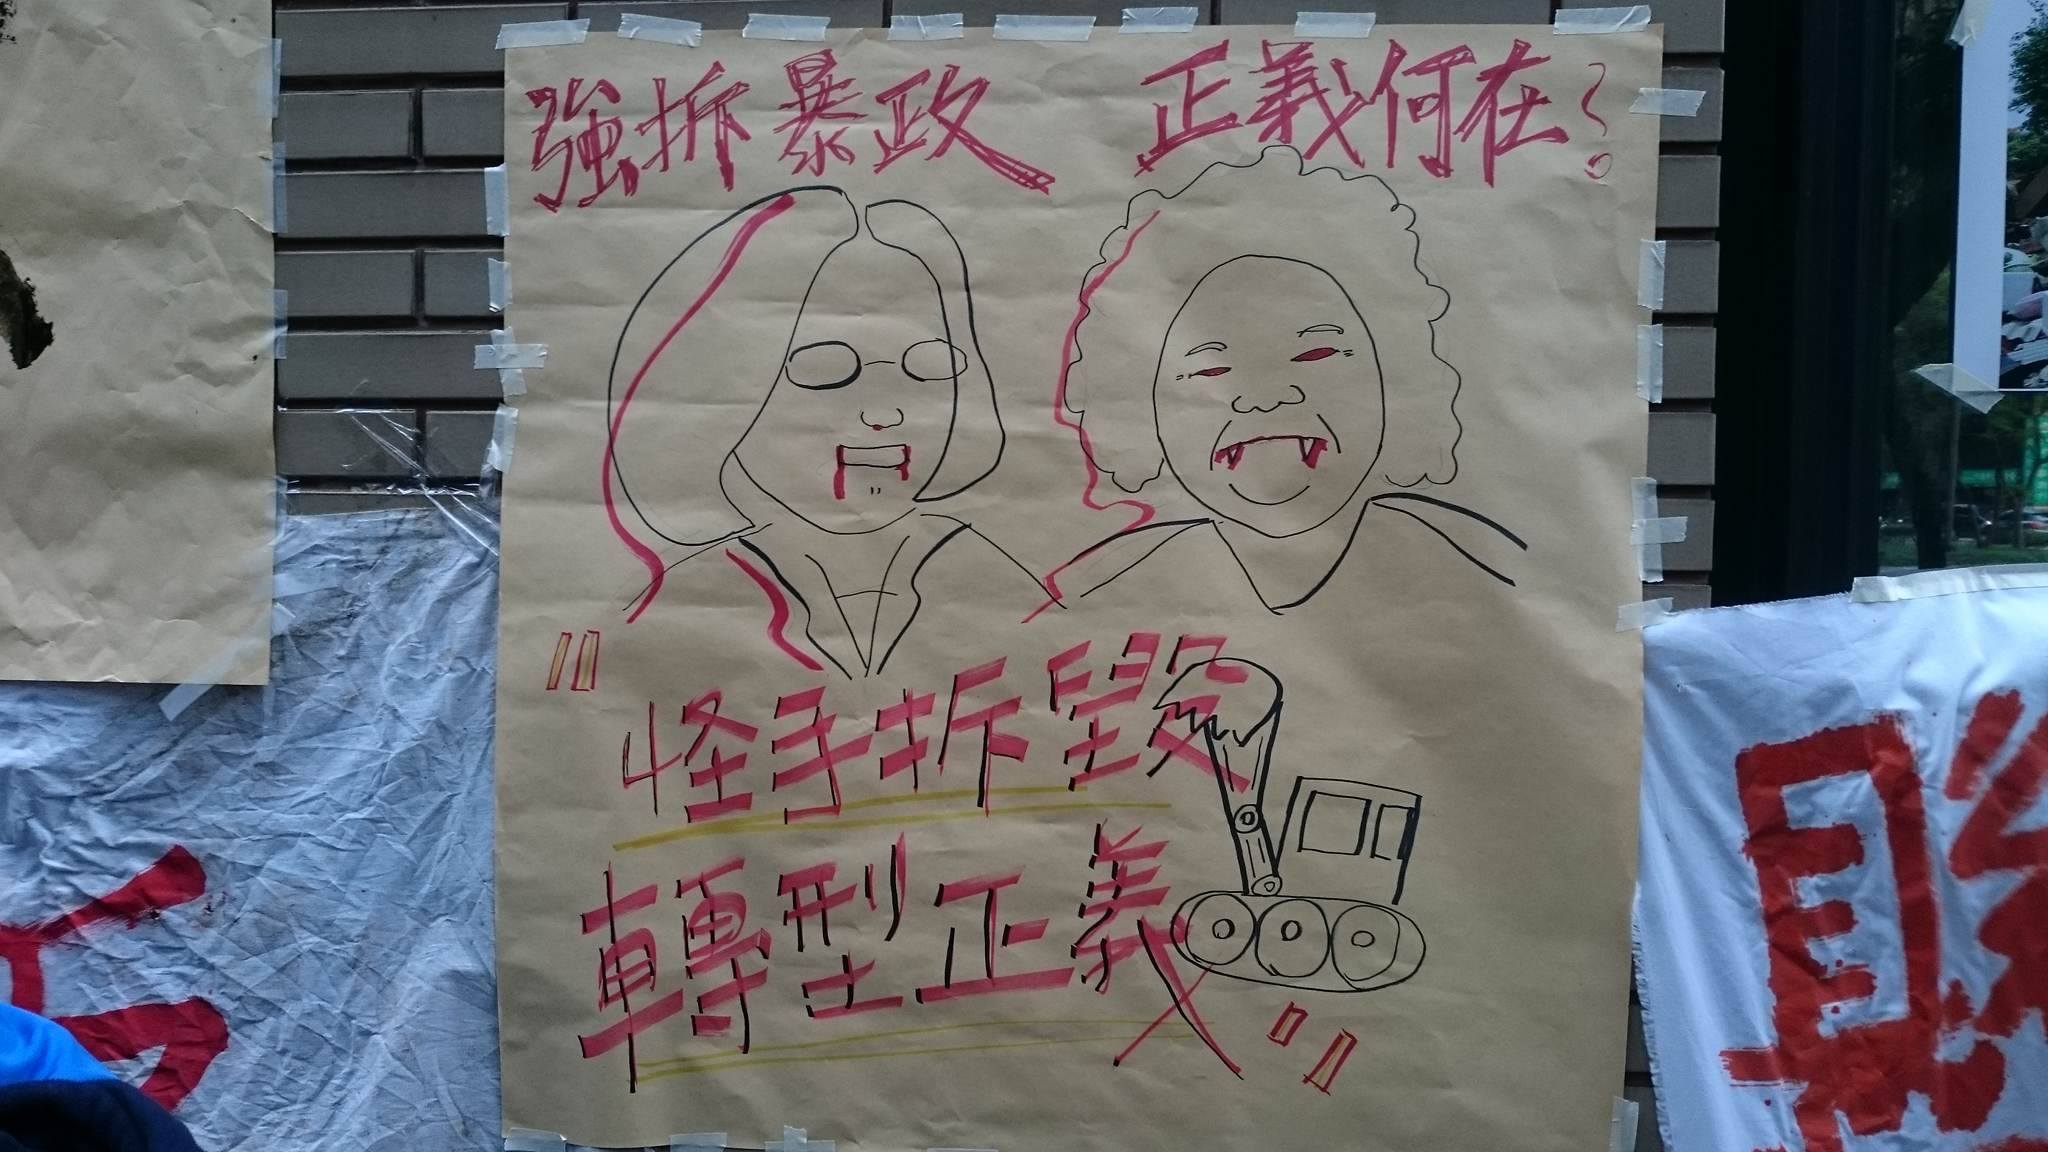 強拆暴政 正義何在？
"怪手拆毀
轉型正義"